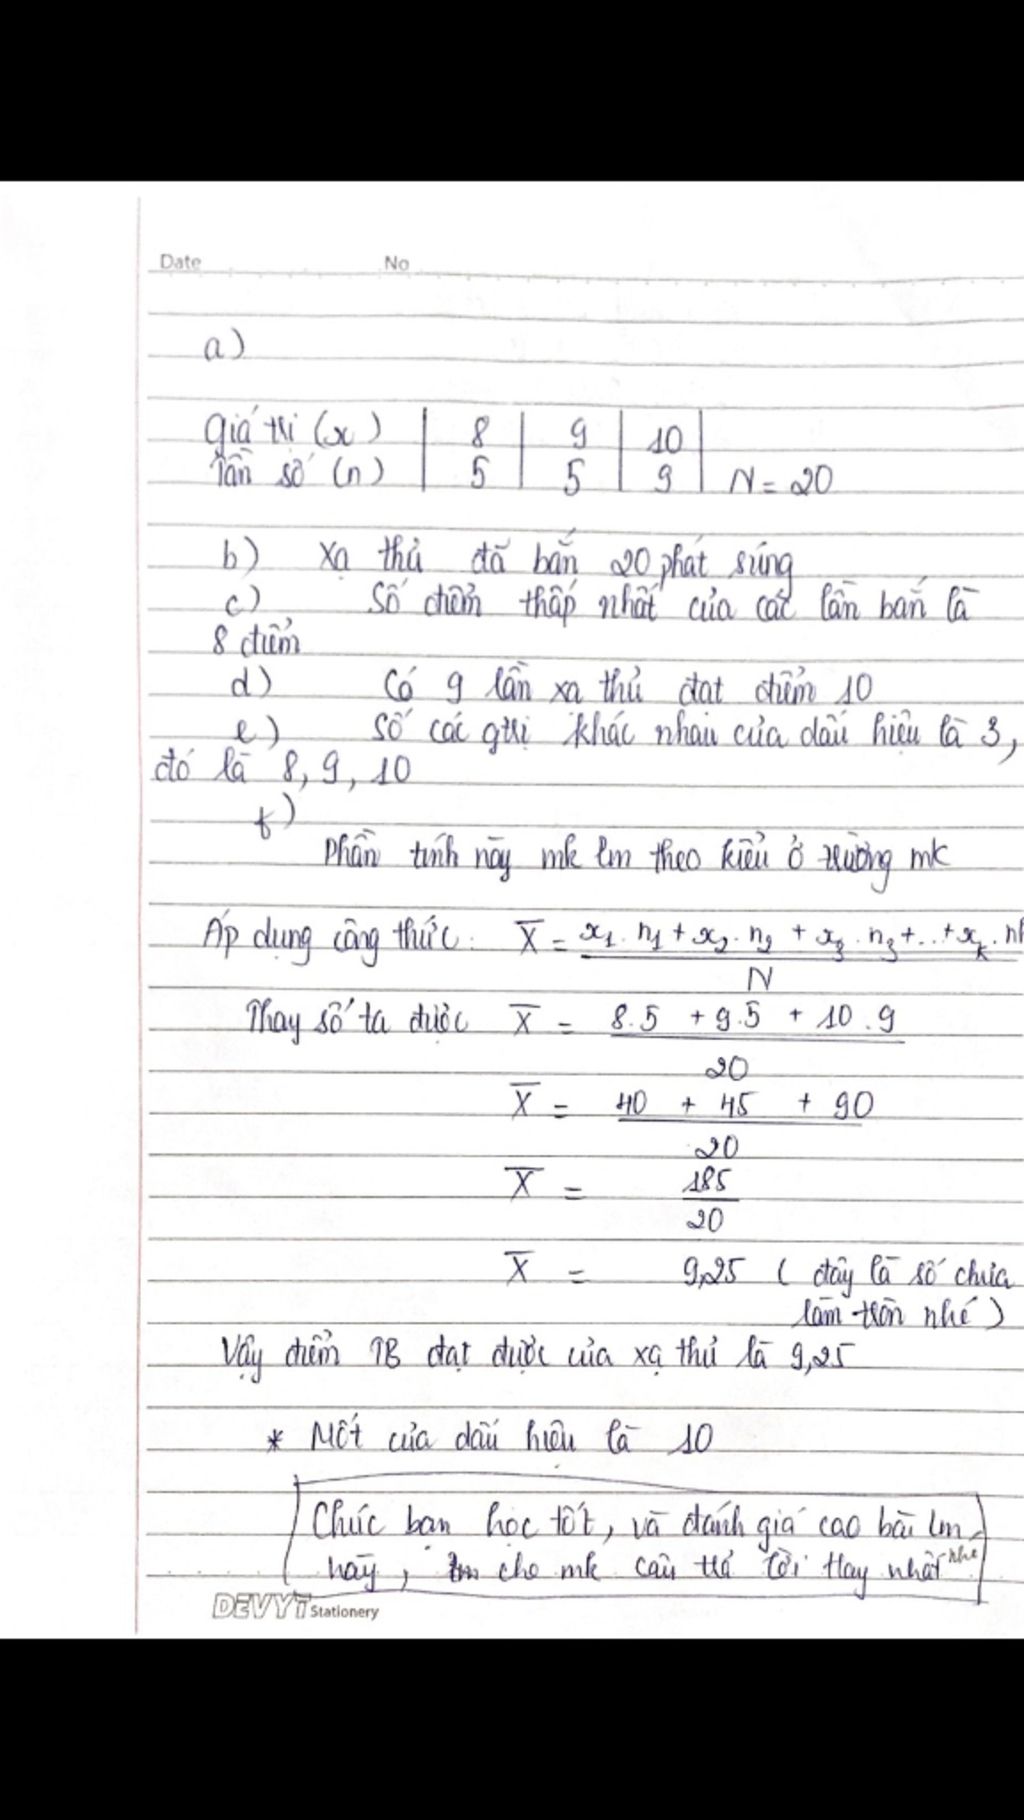 Date No
a)
Giá trị (x) | 8 | 9 | 10 |
Tần số (n) | 5 | 5 | 9 | N = 20
b) Xạ thủ đã bắn 20 phát súng
c) Số điểm thấp nhất của các lần bắn là
8 điểm
d) Có 9 lần xạ thủ đạt điểm 10
e) Số các gtrị khác nhau của dấu hiệu là 3,
đó là 8, 9, 10
f)
Phần tính này mk lm theo kiểu ở trường mk
Áp dụng công thức: X̅ = x₁. n₁ + x₂. n₂ + x₃. n₃ +...+ xₖ. n
N
Thay số ta được X̅ = 8.5 + 9.5 + 10.9
20
X̅ = 40 + 45 + 90
20
X̅ = 185
20
X̅ = 9,25 ( đây là số chưa
làm tròn nhé)
Vậy điểm TB đạt được của xạ thủ là 9,25
* Mốt của dấu hiệu là 10
Chúc bạn học tốt, và đánh giá cao bài lm
này, cho mk câu trả lời hay nhất nhé
DEVYT Stationery